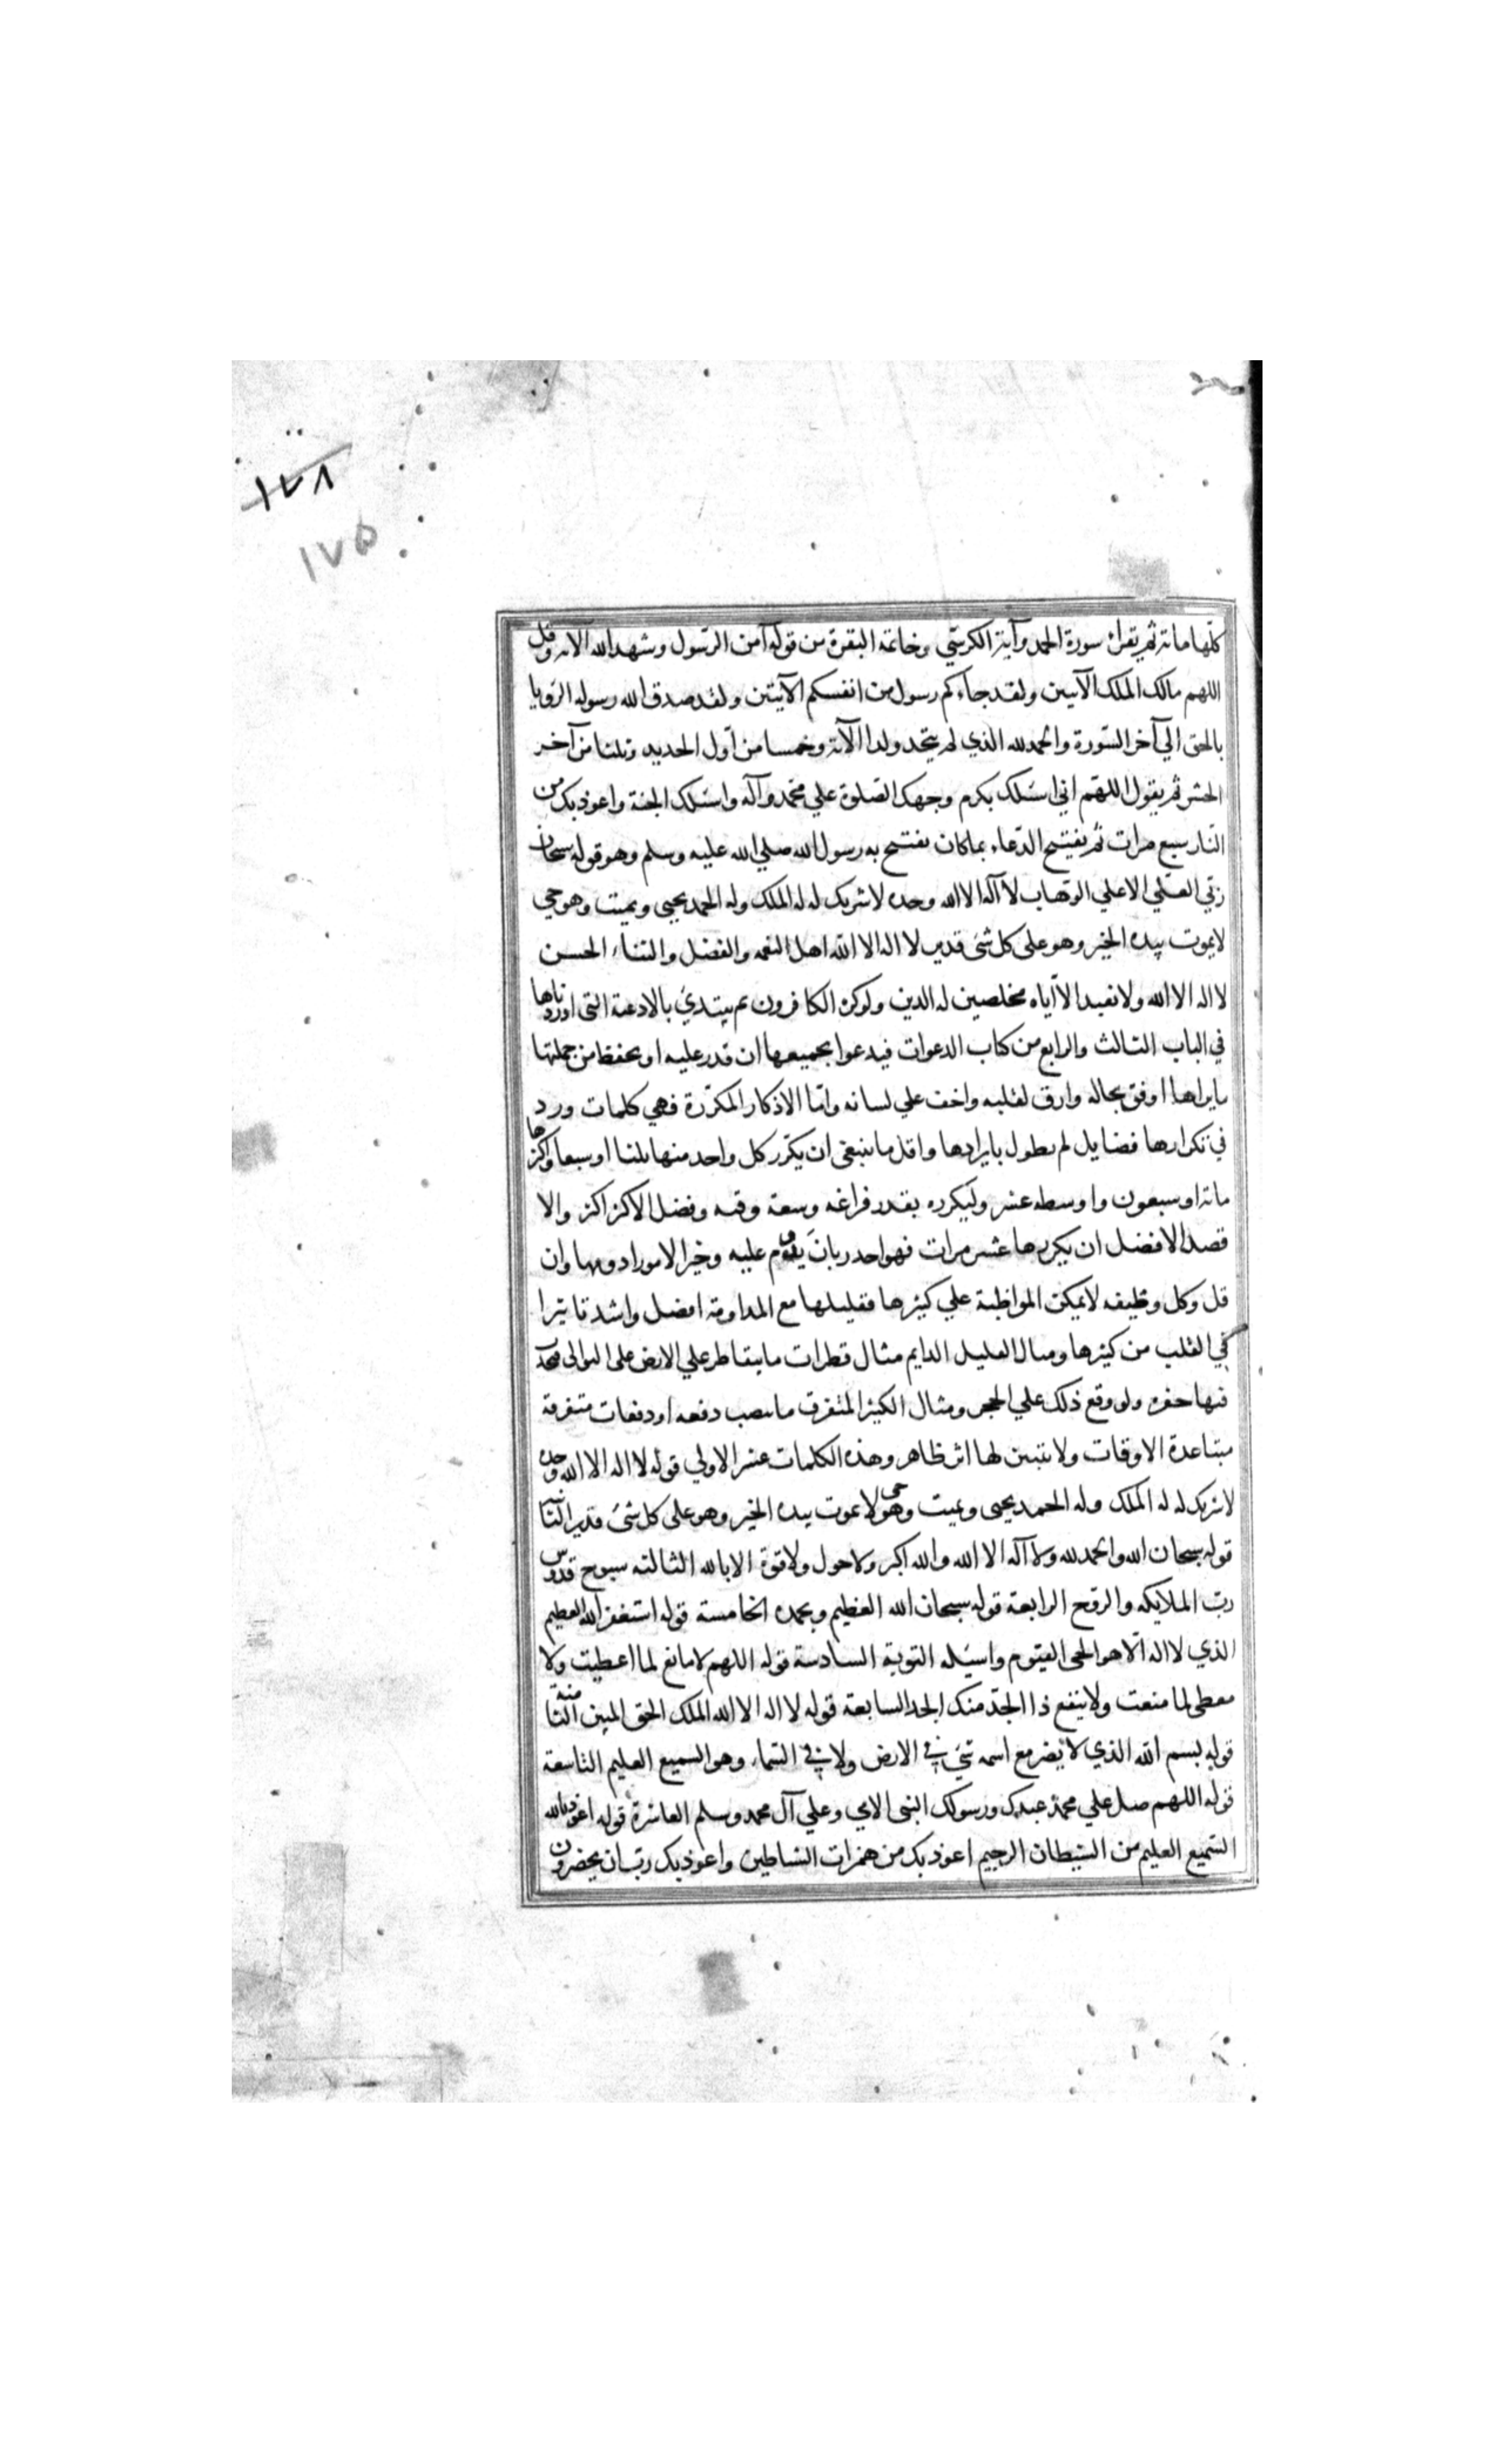 ١٧٨
١٧٥
كلها مائة ثم يقرأ سورة الحمد وآية الكرسي وخاتمة البقرة من قوله آمن الرسول وشهد الله الآية وقل
اللهم مالك الملك الآيتين ولقد جاءكم رسول من انفسكم الآيتين ولقد صدق الله رسوله الرؤيا
بالحق الي آخر السورة والحمد لله الذي لم يتخذ ولدا الآية وخمسا من اول الحديد وثلثا من آخر
الحشر ثم يقول اللهم اني اسئلك بكرم وجهك الصلوة علي محمد وآله واسئلك الجنة واعوذ بك من
النار سبع مرات ثم يفتتح الدعاء بما كان يفتتح به رسول الله صلي الله عليه وسلم وهو قوله سبحان
ربي العلي الاعلي الوهاب لا آله الا الله وحده لا شريك له له الملك وله الحمد يحيي ويميت وهو حي
لا يموت بيده الخير وهو على كل شئ قدير لا اله الا الله اهل النعمه والفضل والثناء الحسن
لا اله الا الله ولا نعبد الا آياه مخلصين له الدين ولو كره الكافرون ثم يبتدئ بالادعية التى اوردناها
في الباب الثالث والرابع من كتاب الدعوات فيدعوا بجميعها ان قدر عليه او يحفظ من جملتها
ما يراها اوفق بحاله وارق لقلبه واخف علي لسانه واما الاذكار المكررة فهي كلمات ورد
في تكرارها فضايل لم نطول بايرادها واقل ما ينبغى ان يكرر كل واحد منها ثلثا او سبعا واكثرها
مائة او سبعون واوسطه عشر وليكرره بقدر فراغه وسعة وقته وفضل الاكثر اكثر والا
قصد الافضل ان يكررها عشر مرات فهو اجدر بان يدوم عليه وخير الامور ادومها وان
قل وكل وظيفه لا يمكن المواظبة علي كثيرها فقليلها مع المداومة افضل واشد تاثيرا
في القلب من كثيرها ومثال القليل الدايم مثال قطرات ما يتقاطر علي الارض على التوالى فتحدث
فيها حفره ولو وقع ذلك علي الحجر ومثال الكثير المتفرق ما يصب دفعه او دفعات متفرقة
متباعدة الاوقات ولا يتبين لها اثر ظاهر وهذه الكلمات عشر الاولي قوله لا اله الا الله وحده
لا شريك له له الملك وله الحمد يحيى ويميت وهو حى لا يموت بيده الخير وهو على كل شئ قدير الثانية
قوله سبحان الله والحمد لله ولا آله الا الله والله اكبر ولا حول ولا قوة الا بالله الثالثه سبوح قدوس
رب الملايكه والروح الرابعة قوله سبحان الله العظيم وبحمده الخامسة قوله استغفر الله العظيم
الذي لا اله الا هو الحى القيوم واسئله التوبة السادسة قوله اللهم لا مانع لما اعطيت ولا
معطى لما منعت ولا ينفع ذا الجد منك الجد السابعة قوله لا اله الا الله الملك الحق المبين الثامنة
قوله بسم الله الذي لا يضر مع اسمه شئ في الارض ولا في السماء وهو السميع العليم التاسعة
قوله اللهم صل علي محمد عبدك ورسولك النبى الامي وعلي آل محمد وسلم العاشرة قوله اعوذ بالله
السميع العليم من الشيطان الرجيم اعوذ بك من همزات الشياطين واعوذ بك رب ان يحضرون